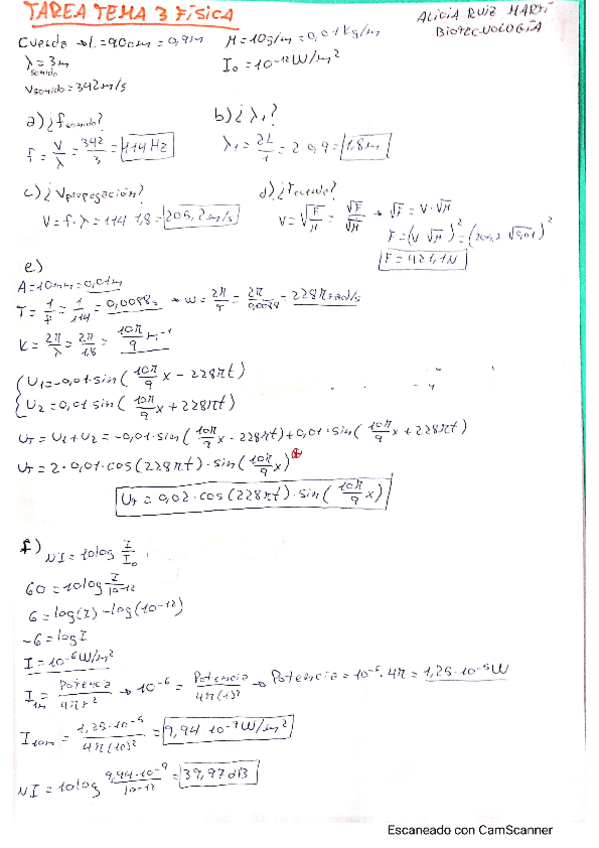 TAREA TEMA 3 FÍSICA
ALICIA RUIZ MARTÍ
BIOTECNOLOGÍA
Cuerda → L = 90cm = 0,9m
M = 10g/m = 0,01kg/m
λsonido = 3m
I₀ = 10⁻¹² W/m²
Vsonido = 342 m/s
a) ¿fsonido?
b) ¿λ₁?
f = V/λ = 342/3 = 114 Hz
λ₁ = 2L/1 = 2·0,9 = 1,8m
c) ¿Vpropagación?
d) ¿Fcuerda?
V = f·λ = 114·1,8 = 205,2 m/s
V = √(F/M) = √F/√M → √F = V·√M
F = (V·√M)² = (205,2 √0,01)²
F = 421,1N
e)
A = 10mm = 0,01m
T = 1/f = 1/114 = 0,0088s → w = 2π/T = 2π/0,0088 = 228π rad/s
K = 2π/λ = 2π/1,8 = 10π/9 m⁻¹
U₁ = -0,01·sin(10π/9 x - 228πt)
U₂ = 0,01·sin(10π/9 x + 228πt)
U_T = U₁ + U₂ = -0,01·sin(10π/9 x - 228πt) + 0,01·sin(10π/9 x + 228πt)
U_T = 2·0,01·cos(228πt)·sin(10π/9 x)
U_T = 0,02·cos(228πt)·sin(10π/9 x)
f) NI = 10log I/I₀
60 = 10log I/10⁻¹²
6 = log(I) - log(10⁻¹²)
-6 = log I
I = 10⁻⁶ W/m²
I₁ₘ = Potencia/4πr² → 10⁻⁶ = Potencia/4π(1)² → Potencia = 10⁻⁶·4π = 1,25·10⁻⁵ W
I₁₀ₘ = 1,25·10⁻⁵/4π(10)² = 9,94·10⁻⁹ W/m²
NI = 10log 9,94·10⁻⁹/10⁻¹² = 39,97 dB
Escaneado con CamScanner